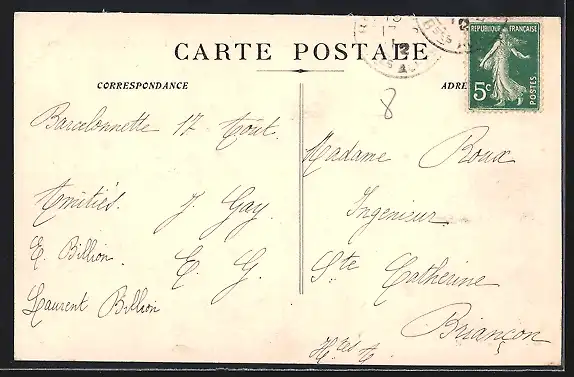 CARTE POSTALE
CORRESPONDANCE
ADRE
RÉPUBLIQUE FRANÇAISE
5c
POSTES
8
Barcelonnette 17 Aout.
Amitiés. J. Gay
E. Billion. E. G.
Laurent Billion
Madame Roux
Ingenieur
Ste Catherine
Briançon
Htes A